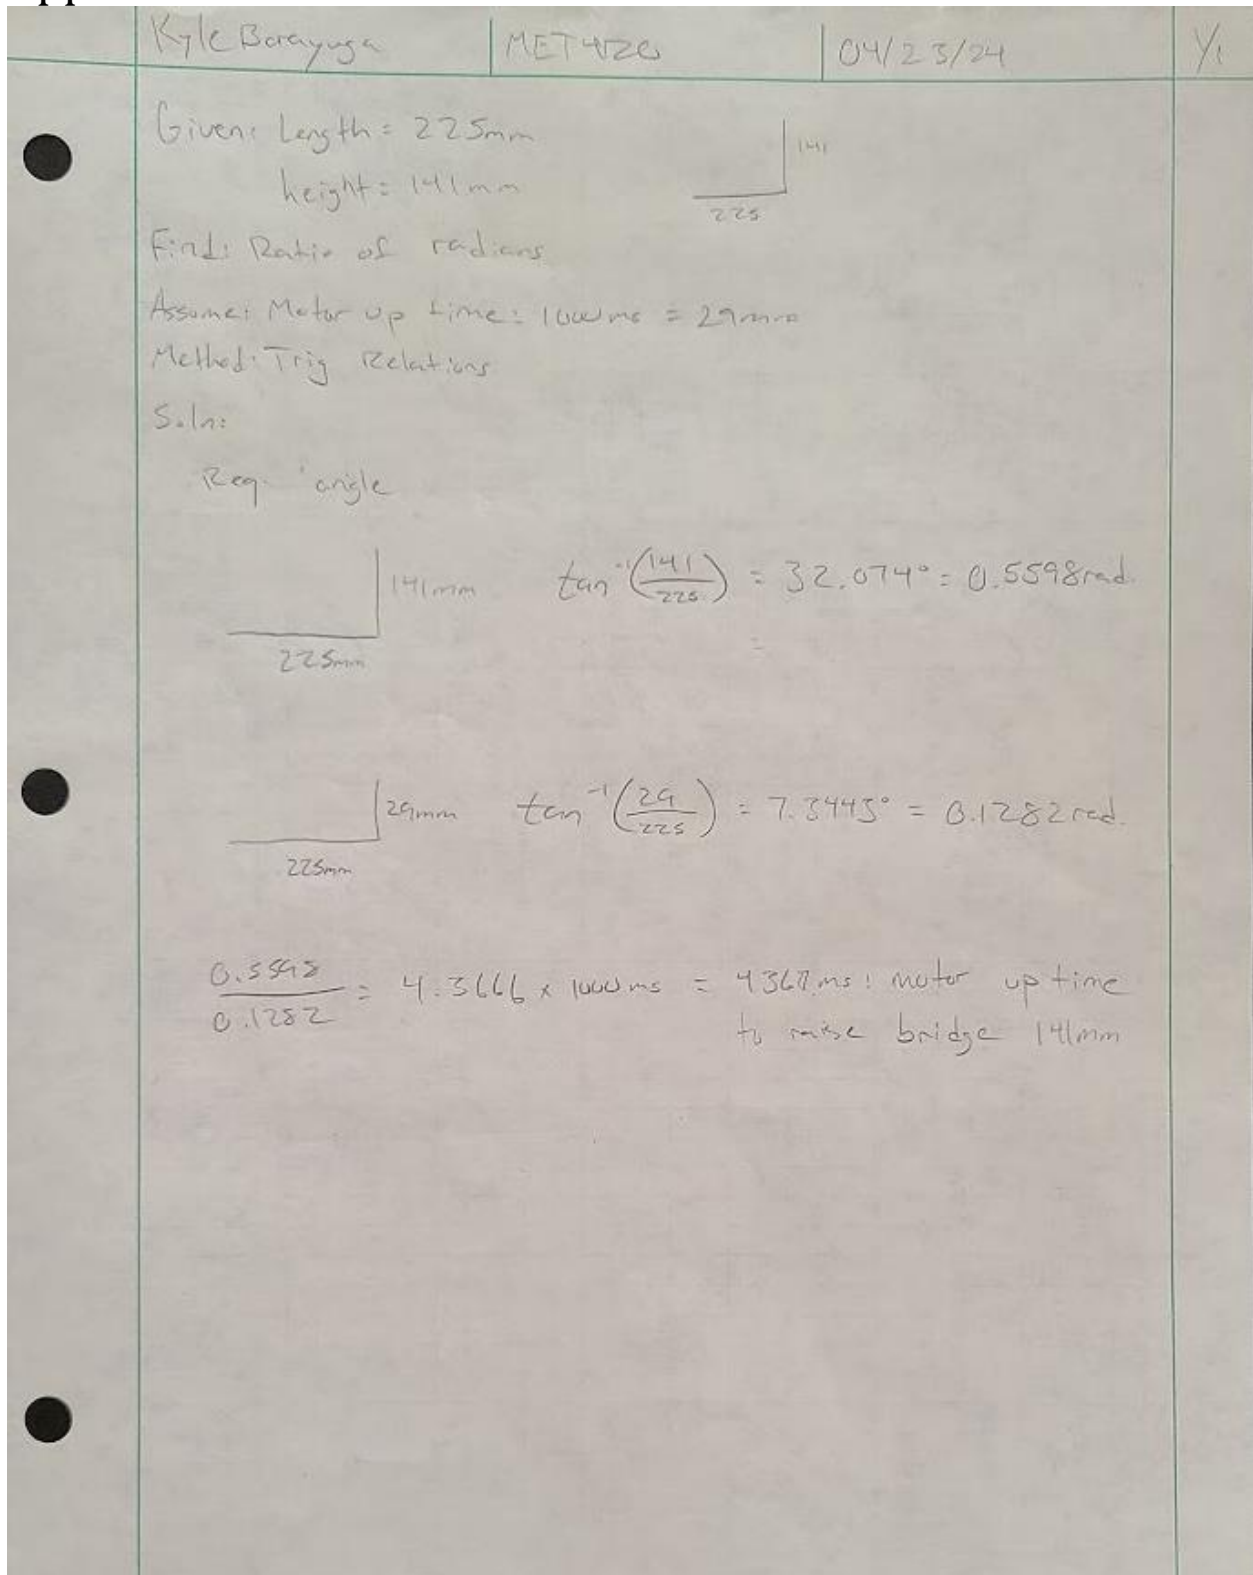 Kyle Barayuga MET420 04/23/24 1/1
Given: Length = 225mm
141
height = 141mm
225
Find: Ratio of radians
Assume: Motor up time: 1000ms = 29mm
Method: Trig Relations
Soln:
Req. angle
141mm tan⁻¹(141/225) = 32.074° = 0.5598rad.
=
225mm
29mm tan⁻¹(29/225) = 7.3443° = 0.1282rad.
225mm
0.5598/0.1282 = 4.3666 x 1000ms = 4367ms: motor up time
to raise bridge 141mm